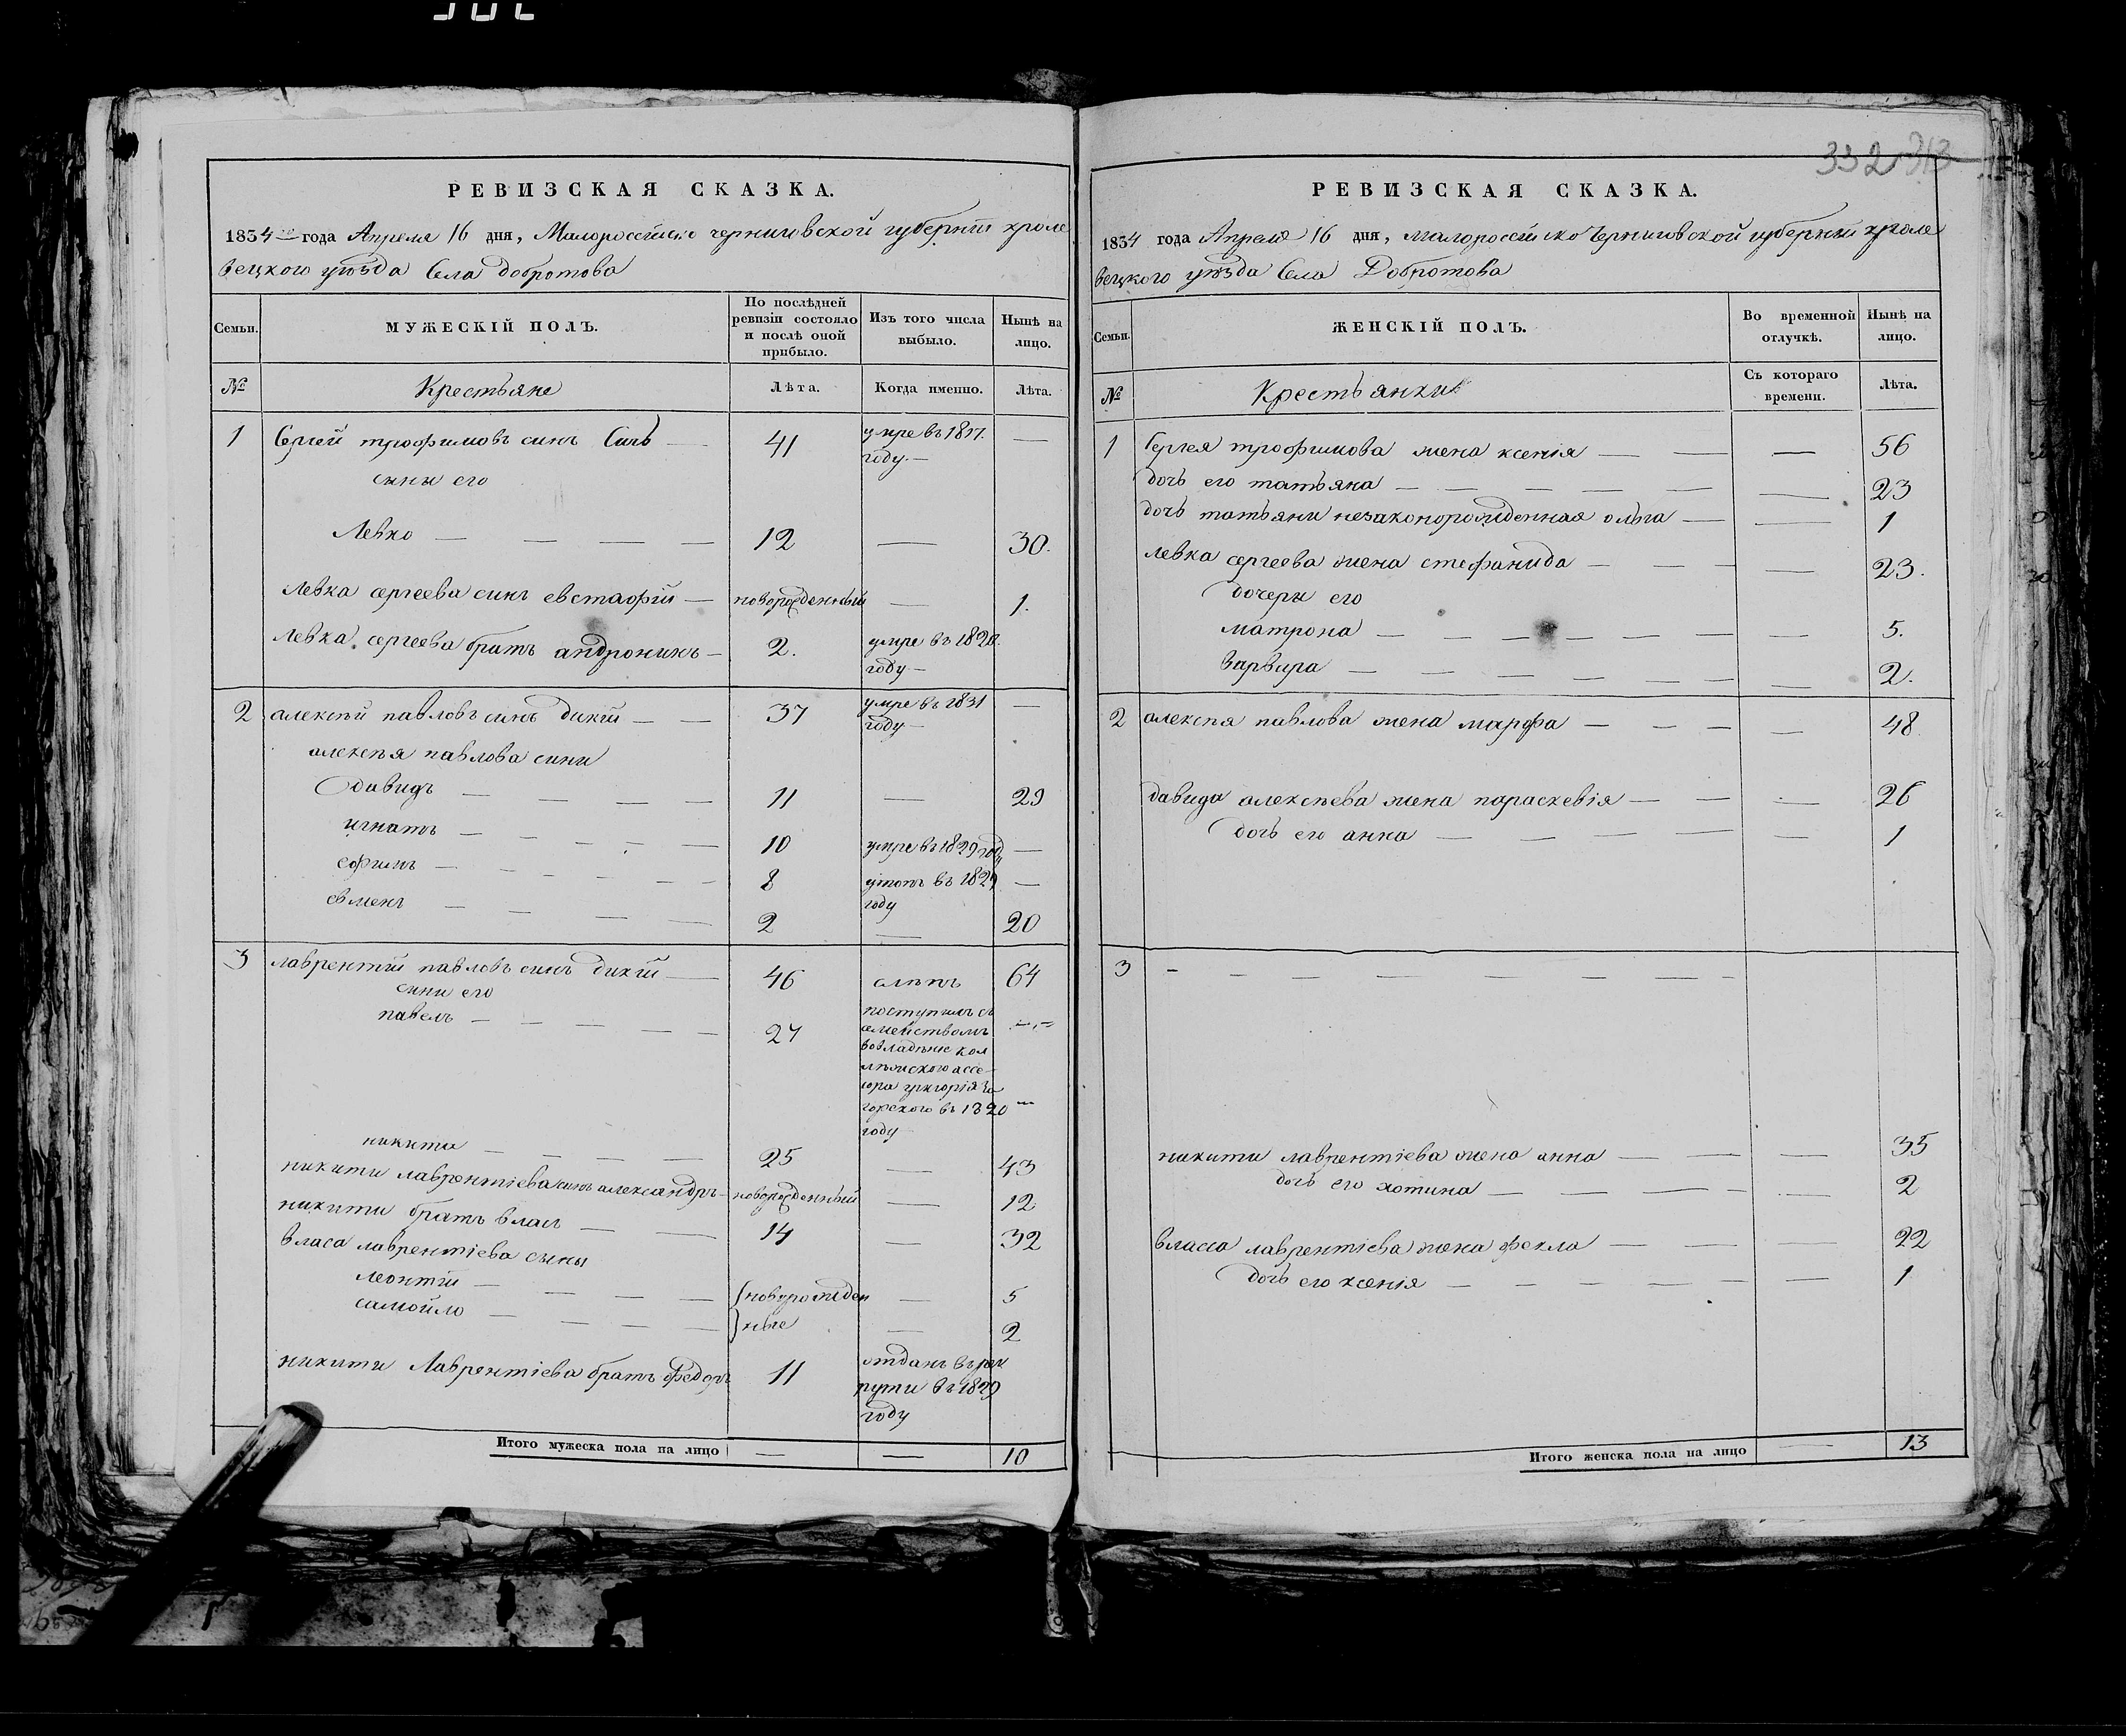 332 313
РЕВИЗСКАЯ СКАЗКА.
1834 года Апреля 16 дня, Малороссійско черниговской губерніи кроле
вецкого уѣзда Села добротова
Семьи.
МУЖЕСКІЙ ПОЛЪ.
По послѣдней ревизіи состояло и послѣ оной прибыло.
Изъ того числа выбыло.
Нынѣ на лицо.
№
Крестьяне
Лѣта.
Когда именно.
Лѣта.
1 Сергей трофимовъ синъ — 41 умре въ 1817. —
году —
сыны его
Левко — — — — 12 — 30.
Левка сергеева синъ евстафій — новорожденный — 1.
Левка сергеева братъ андроникъ — 2. умре въ 1820.
году —
2 алексѣй павловъ синъ дикій — — 37 умре въ 1831 —
году —
алексѣя павлова сини
давидъ — — — — 11 — 29
игнатъ — — — — 10 умре въ 1829 году —
ефимъ — — — — — 8 утопъ въ 1829 —
году
евменъ — — — — 2 — 20
3 лаврентій павловъ синъ дикій — 46 слѣпъ 64
сини его
павелъ — — — — — 27 поступилъ съ
семействомъ
во владѣніе кол
лѣжского ассе-
сора григорія За
горского въ 1820
году
никита — — — — 25 — 43
никити лаврентіева синъ александръ — новорожденный — 12
никити братъ власъ — — 14 — 32
власа лаврентіева сыны
леонтій — — — — новорожден — 5
самойло — — — — ные — 2
никити Лаврентіева братъ федоръ 11 отданъ въ рек
рути въ 1829
году
Итого мужеска пола на лицо — — 10
РЕВИЗСКАЯ СКАЗКА.
1834 года Апреля 16 дня, малороссійско Черниговской губерніи кроле
вецкого уѣзда Села Добротова
Семьи.
ЖЕНСКІЙ ПОЛЪ.
Во временной отлучкѣ.
Нынѣ на лицо.
№
Крестьянки
Съ котораго времени.
Лѣта.
1 Сергея трофимова жена ксенія — — — 56
дочь его татьяна — — — — — — 23
дочь татьяни незаконорожденная ольга — — 1
левка сергеева жена стефанида — — — — 23.
дочери его
матрона — — — — — — — 5.
варвара — — — — — — — 2.
2 алексѣя павлова жена марфа — — — — 48.
давида алексѣева жена параскевія — — — 26
дочь его анна — — — — — 1
3 - — — — — — —
никити лаврентіева жена анна — — — — 35
дочь его хотина — — — — — 2
власа лаврентіева жена фекла — — — — 22
дочь его ксенія — — — — — — 1
Итого женска пола на лицо — 13